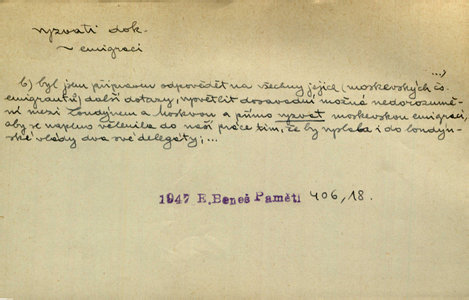 vyzvati dok.
~ emigraci
...)
b) byl jsem připraven odpovědět na všechny jejich (moskevských čs.
emigrantů) další dotazy, vysvětlit dosavadní možná nedorozumě-
ní mezi Londýnem a Moskvou a přímo vyzvat moskevskou emigraci,
aby se naplno včlenila do naší práce tím, že by vyslala i do londýn-
ské vlády dva své delegáty; ...
1947 E. Beneš Paměti 406, 18.